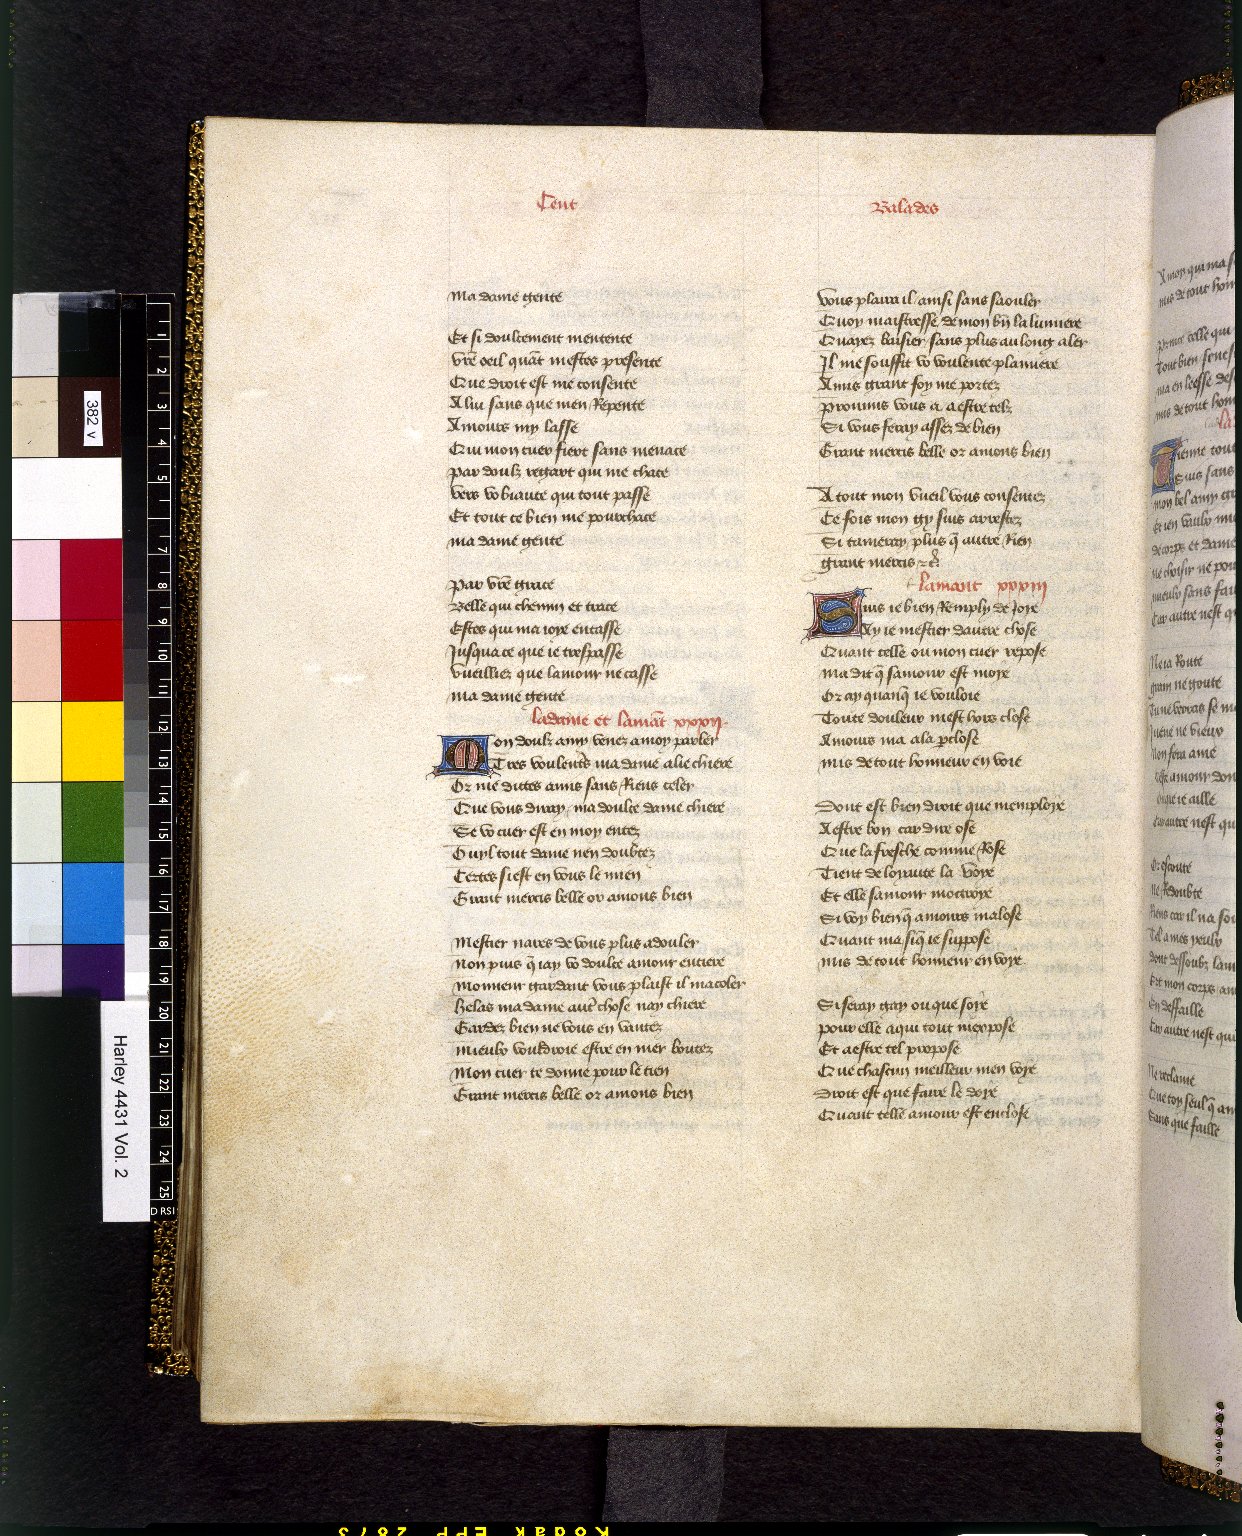 Cent
Balades
Ma dame gente
Et si doulcement mentente
Vre oeil quāt mestes presente
Que droit est me consente
A lui sans que men Repente
Amours my lasse
Qui mon cuer fiert sans menace
Par doulz regart qui me chace
Vers vo biaute qui tout passe
Et tout ce bien me pourchace
Ma dame gente
Par vrē grace
Belle qui chemin et trace
Estes qui ma ioye entasse
Jusqua ce que ie trespasse
Vueilliez que lamour ne casse
Ma dame gente
La dame et lamāt xxxii
Mon doulz amy venez a moy parler
Tres voulentˢ ma dame a lie chiere
Or me dittes amis sans Riens celer
Que vous diray, ma doulce dame chiere
Se vo cuer est en moy entez
Ouyl tout dame nen doubtez
Certes si est en vous le mien
Grant mercis belle or amons bien
Mestier naves de vous plus adouler
Non puis q̄ iay vo doulce amour entiere
Monneur gardant vous plaist il macoler
Helas ma dame aut chose nay chiere
Gardez bien ne vous en vantez
Mieulx vouldroie estre en mer boutez
Mon cuer te donne pour le tien
Grant mercis belle or amons bien
Vous plaira il ainsi sans saouler
Quoy maistresse, de mon biē la lumiere
Quayez baisier sans plus au long aler
Il me souffit vo voulente planiere
Amis grant foy me portez
Promis vous a a estre telz
Si vous feray assez de bien
Grant mercis belle or amons bien
A tout mon vueil vous consentez
Ce fois mon gy suis arrestez
Si tameray plus q̄ autre Rien
Grant mercis ⁊c̄
Lamant xxxiii
Suis ie bien Remply de Joye
Ay ie mestier dautre chose
Quant celle ou mon cuer repose
Ma dit q̄ samour est moye
Or ay quanq̄ ie vouloie
Toute douleur mest hors close
Amours ma a la ꝑclose
Mis de tout honneur en voie
Dont est bien droit que memploye
A estre bon car dire ose
Que la fresche comme Rose
Tient de loyaute la voye
Et elle samour mottroye
Si voy bien q̄ amours malose
Quant ma siq̄ ie suppose
Mis de tout honneur en voye
Si seray gay ou que soye
Pour elle a qui tout mexpose
Et a estre tel propose
Que chascun meilleur men voye
Droit est que faire le doye
Quant telle amour est enclose
382 v
Harley 4431 Vol. 2
1
2
3
4
5
6
7
8
9
10
11
12
13
14
15
16
17
18
19
20
21
22
23
24
25
Kodak EPP 2873